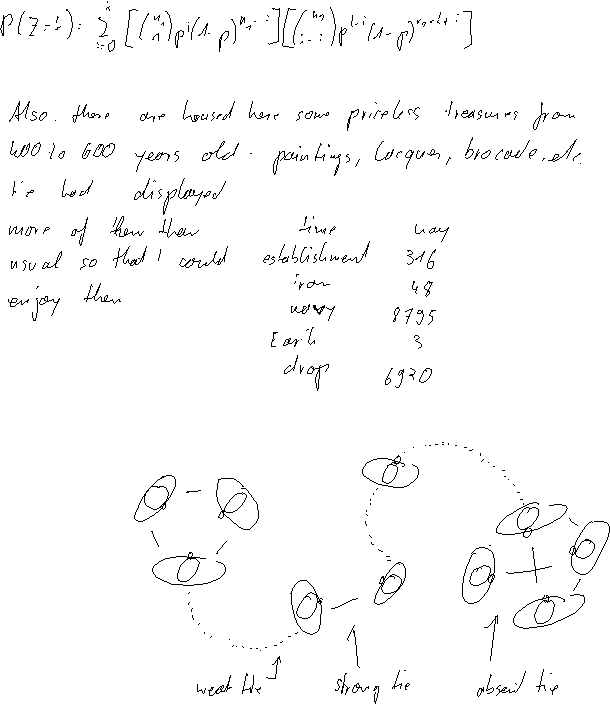 P(Z=k)= Σ i=0 k [(n1 i) p^i (1-p)^n1-i] [(n2 k-i) p^k-i (1-p)^n2-k+i]
Also there are housed here some priceless treasures from
400 to 600 years old - paintings, lacquer, brocade, etc.
He had displayed
more of them than
usual so that I could
enjoy them
time navy
establishment 316
iron 48
navy 8795
Earth 3
drop 6920
weak tie strong tie absent tie